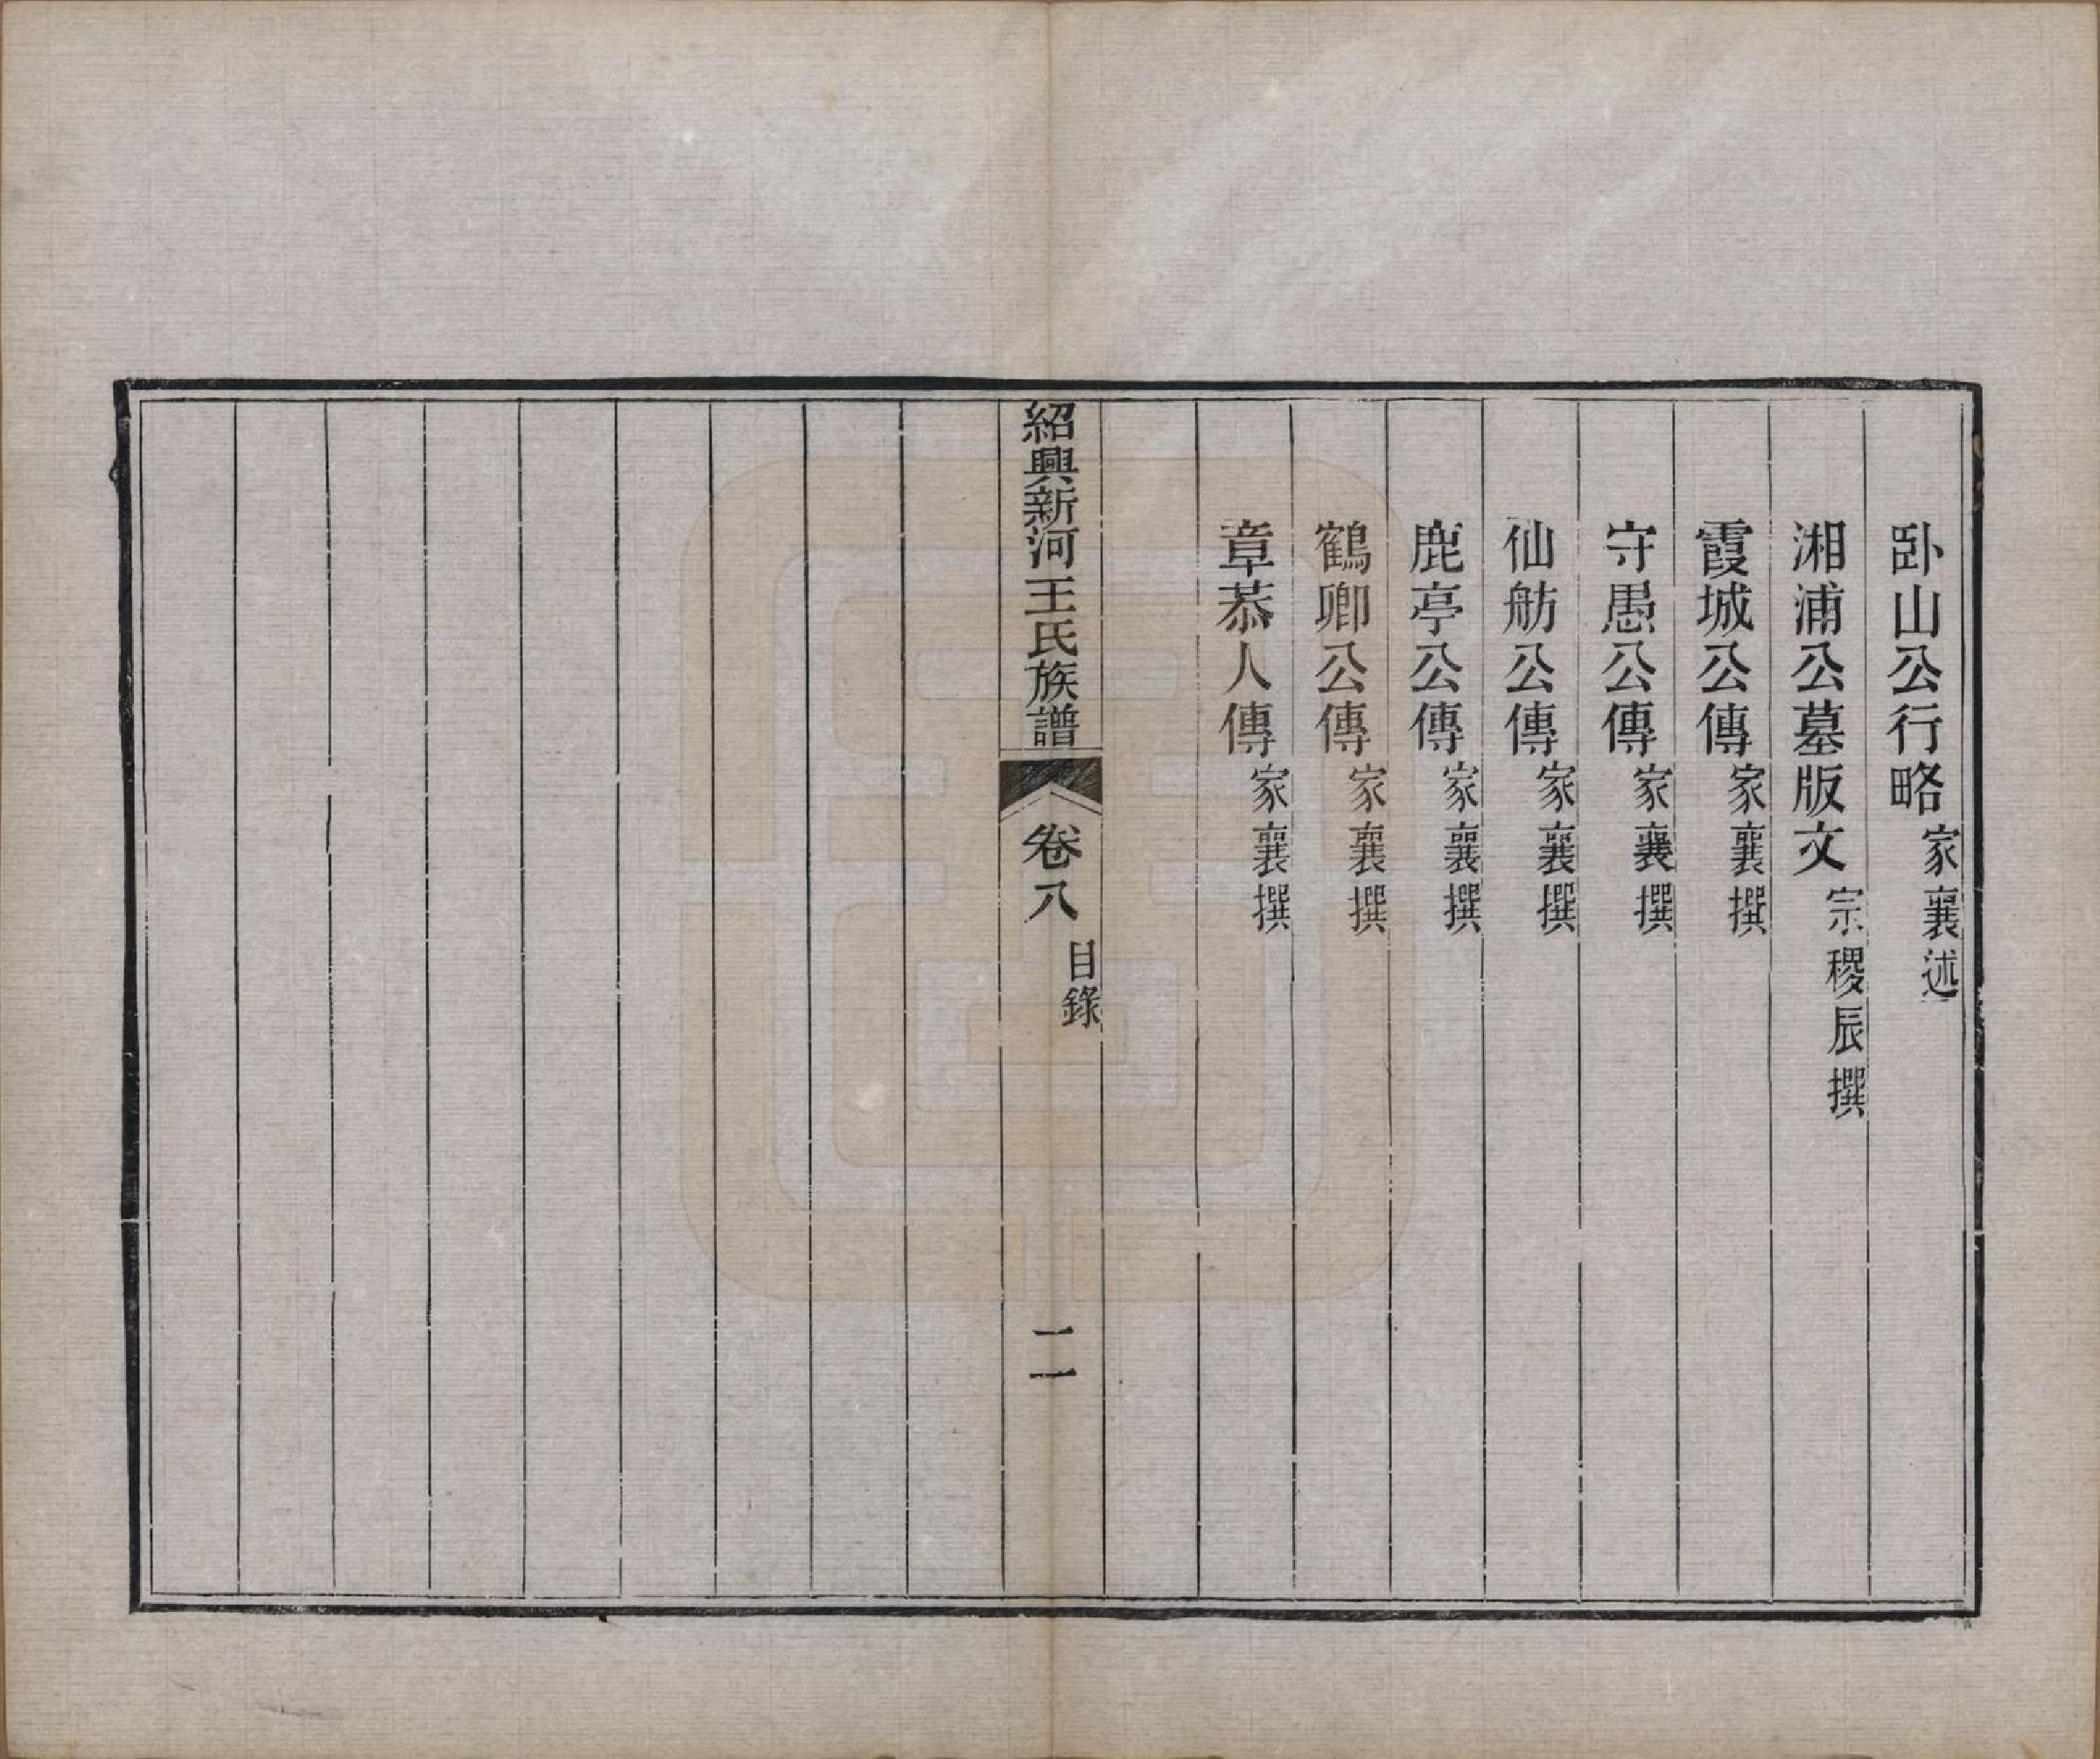 卧山公行略家襄述
湘浦公墓版文宗稷辰撰
霞城公傳家襄撰
守愚公傳家襄撰
仙舫公傳家襄撰
鹿亭公傳家襄撰
鶴卿公傳家襄撰
章恭人傳家襄撰
紹興新河王氏族譜 卷八 目錄 二